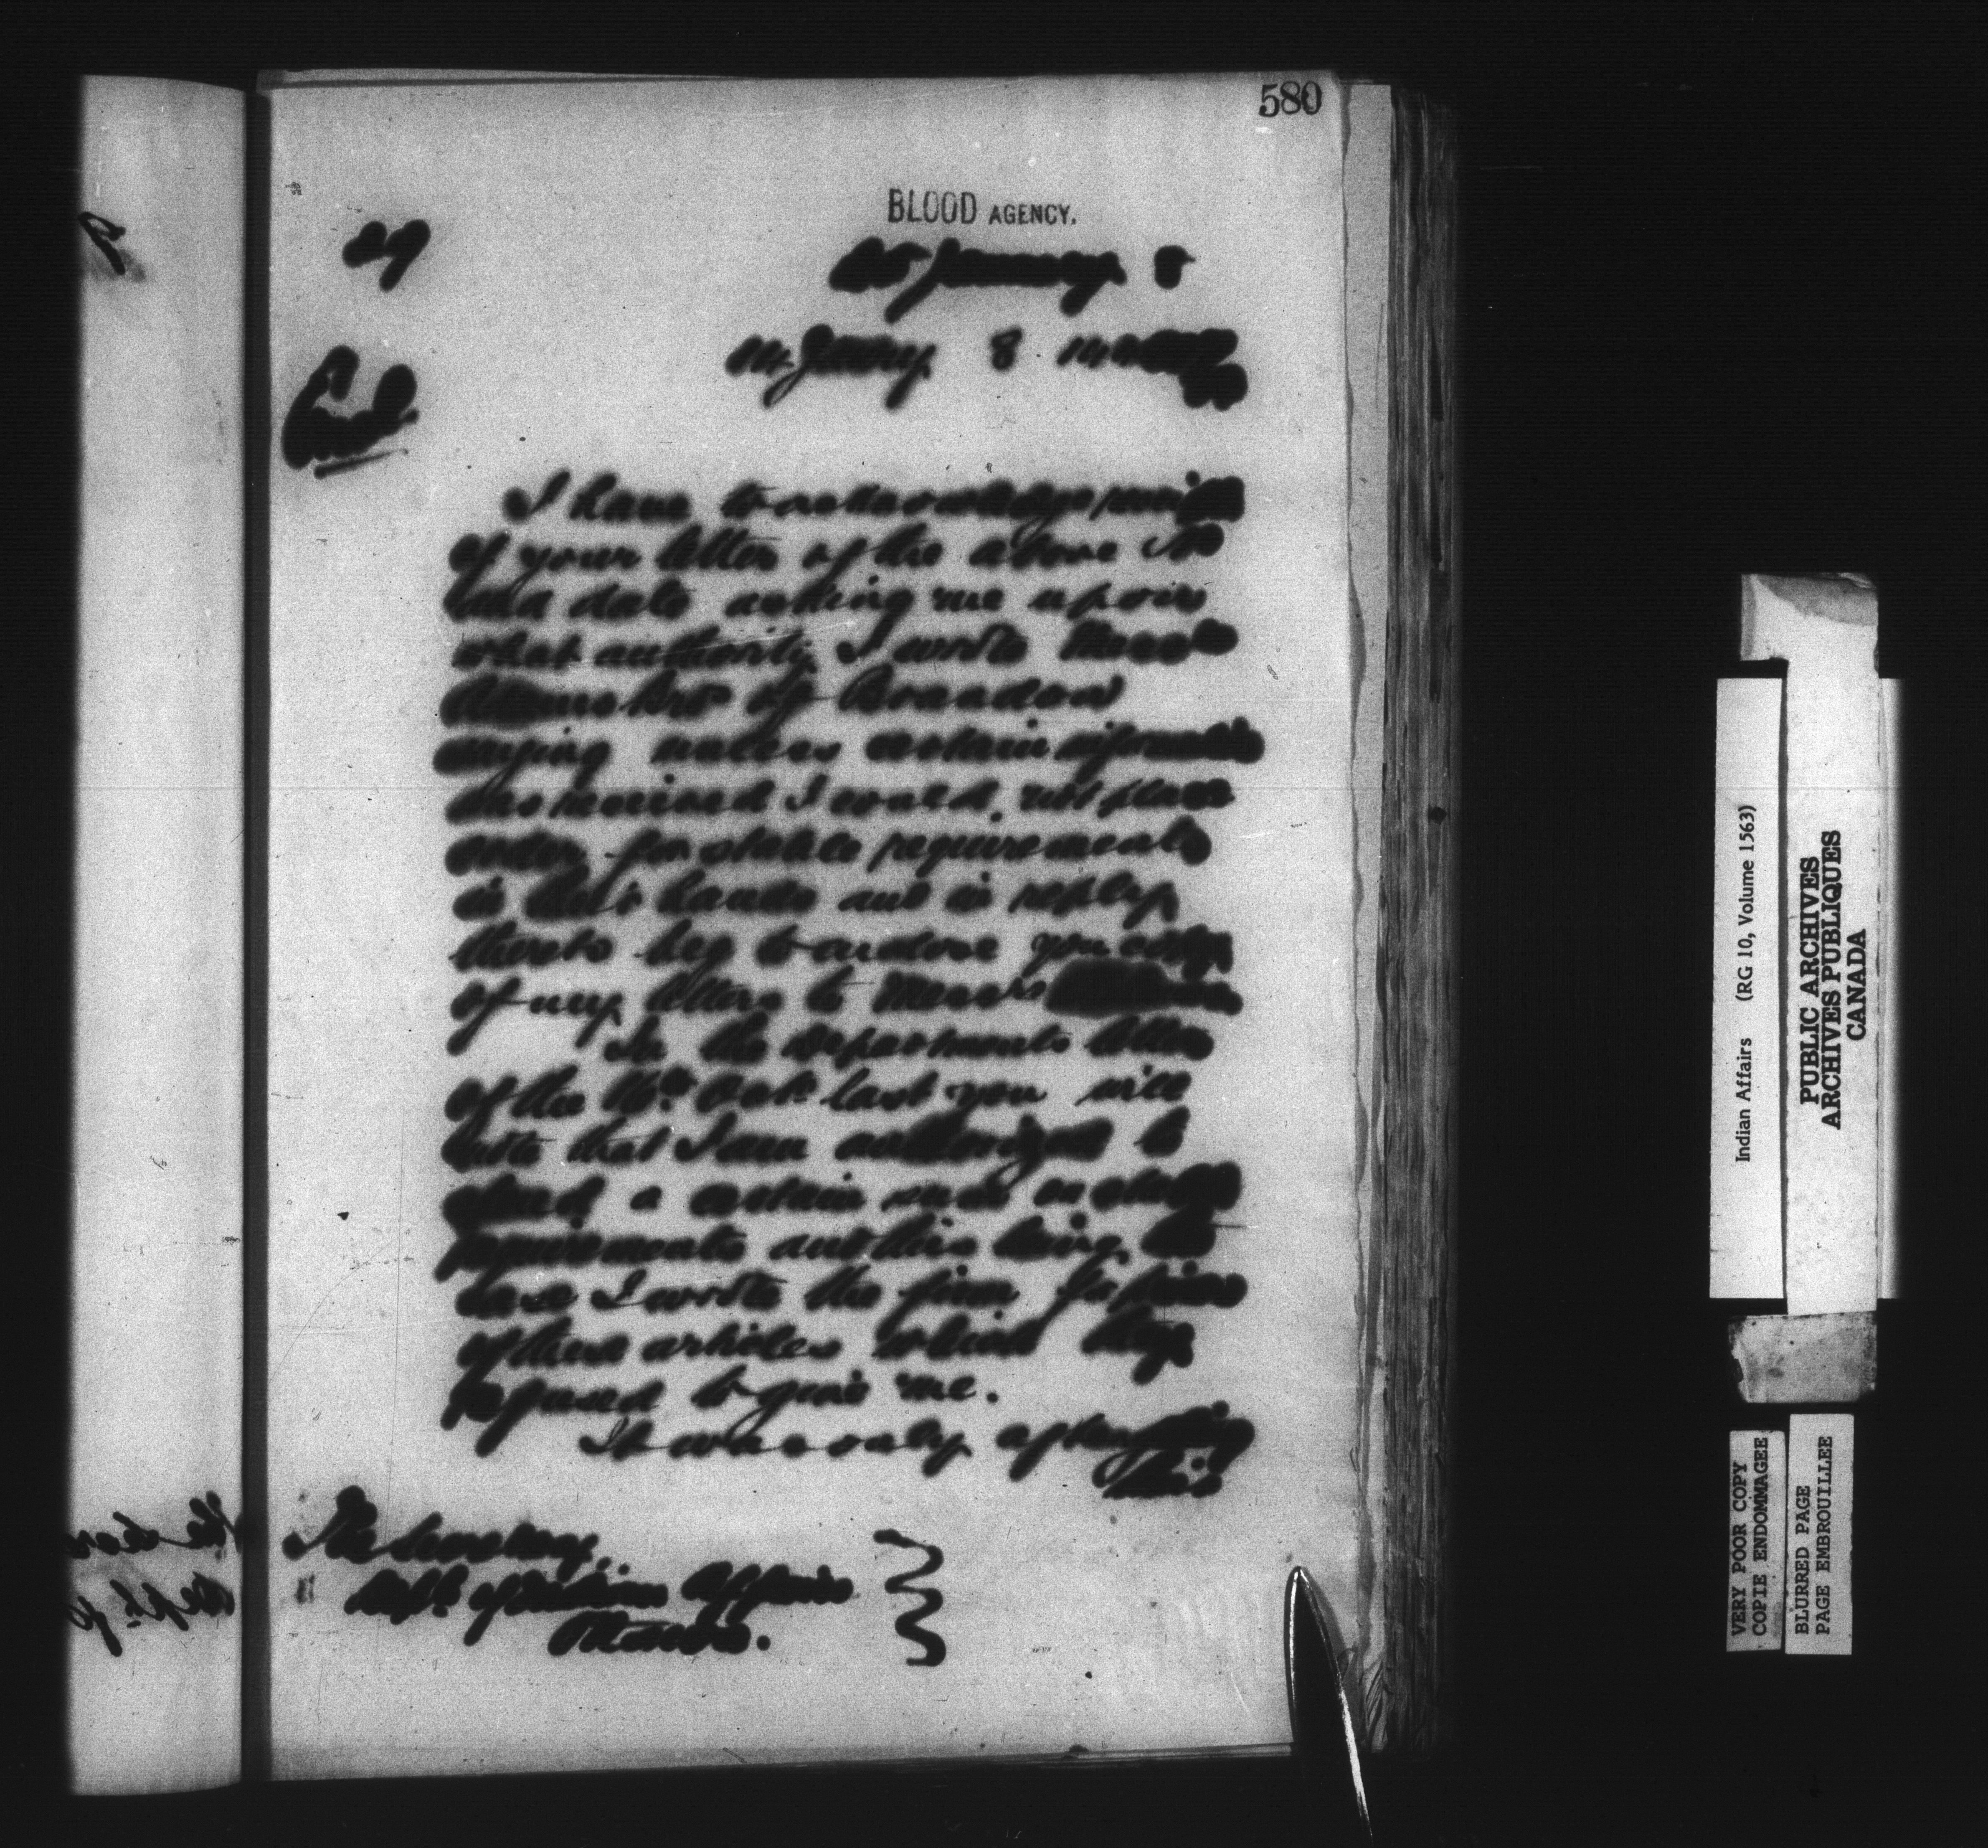 580
BLOOD AGENCY.
29
January 8
Encl
I have to acknowledge receipt
of your letter of the above No
and date asking me upon
what authority I wrote Messrs
Bros of Brandon
saying unless certain information
was received I would not place
order for stable requirements
in their hands and in reply
thereto beg to enclose you copy
of my letters to Messrs
In the Departments letter
of the 16th Octr last you will
note that I am authorized to
a certain sum on stable
requirements and this being the
case I wrote the firm for prices
of these articles which they
refused to give me.
It was only after
this
The Secretary,
Dept. of Indian Affairs
Ottawa.
Indian Affairs (RG 10, Volume 1563)
PUBLIC ARCHIVES
ARCHIVES PUBLIQUES
CANADA
VERY POOR COPY
COPIE ENDOMMAGEE
BLURRED PAGE
PAGE EMBROUILLEE